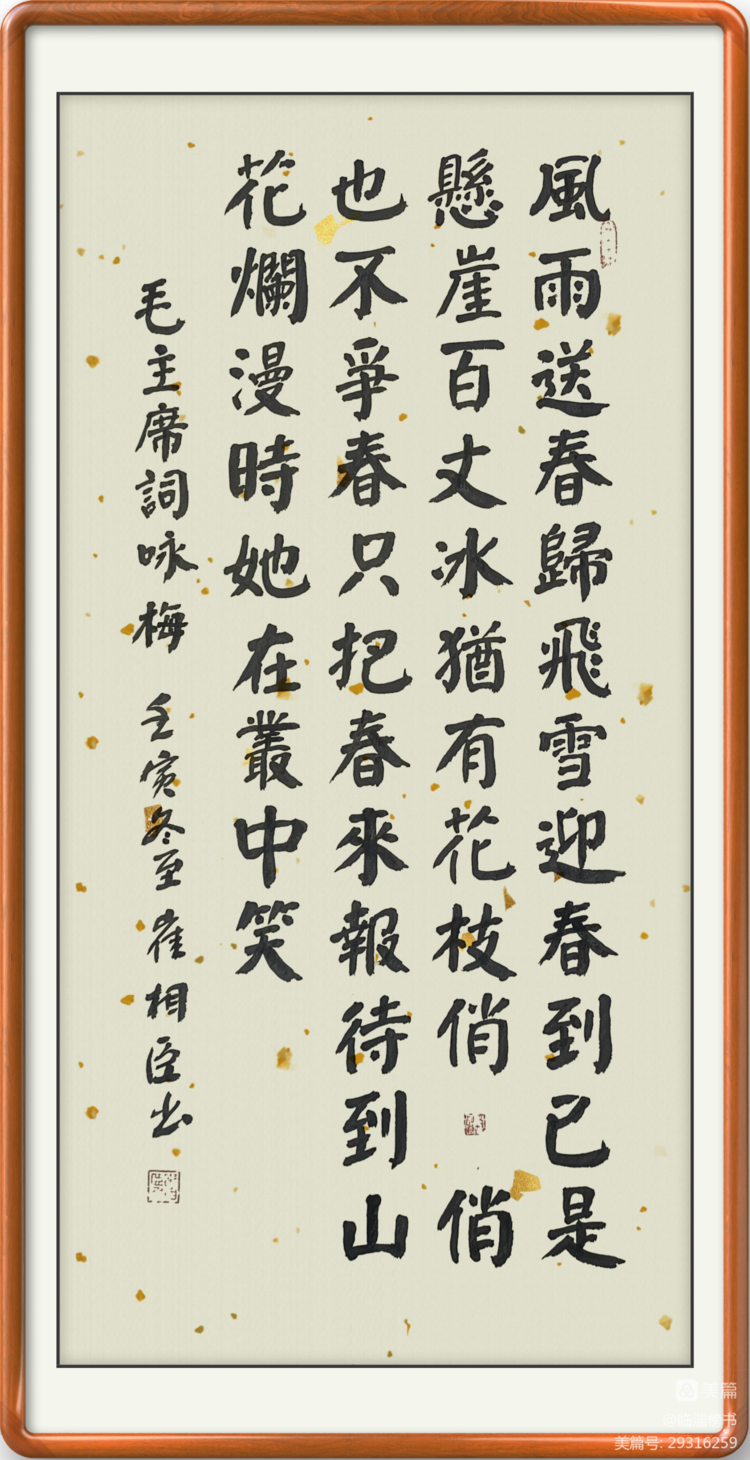 風雨送春歸飛雪迎春到已是
懸崖百丈冰猶有花枝俏 俏
也不爭春只把春來報待到山
花爛漫時她在叢中笑
毛主席詞咏梅 壬寅冬至 崔相臣书
美篇
美篇号: 29316259